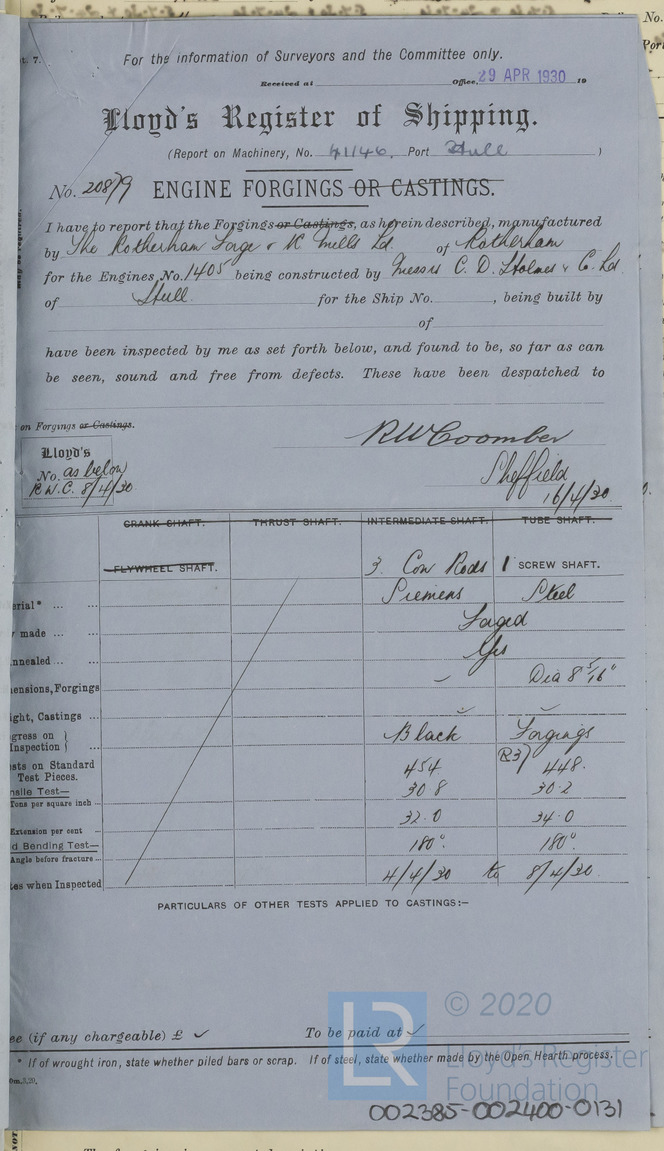 t. 7.
For the information of Surveyors and the Committee only.
Received at Office, 29 APR 1930 19
Lloyd's Register of Shipping.
(Report on Machinery, No. 41146, Port Hull )
No. 20879 ENGINE FORGINGS OR CASTINGS.
I have to report that the Forgings or Castings, as herein described, manufactured
by The Rotherham Forge & R Mills Ld. of Rotherham
for the Engines, No. 1405 being constructed by Messrs C. D. Holmes & Co. Ld.
of Hull for the Ship No. , being built by
of
have been inspected by me as set forth below, and found to be, so far as can
be seen, sound and free from defects. These have been despatched to
on Forgings or Castings.
Lloyd's
No. as below
R.W.C. 8/4/30
RW Coomber
Sheffield
16/4/30
CRANK SHAFT. THRUST SHAFT. INTERMEDIATE SHAFT. TUBE SHAFT.
FLYWHEEL SHAFT. 3. Con Rods 1 SCREW SHAFT.
erial* ... ... Siemens Steel
made ... ... Forged
nnealed ... ... Yes
ensions, Forgings Dia 8 5/16"
ight, Castings ...
gress on
Inspection ... Black Forgings
sts on Standard
Test Pieces. 454 R3) 448.
nsile Test—
Tons per square inch 30.8 30.2
Extension per cent 32.0 34.0
d Bending Test—
Angle before fracture 180°. 180°.
tes when Inspected 4/4/30 to 8/4/30
PARTICULARS OF OTHER TESTS APPLIED TO CASTINGS:—
ee (if any chargeable) £ To be paid at
* If of wrought iron, state whether piled bars or scrap. If of steel, state whether made by the Open Hearth process.
LR © 2020
Lloyd's Register
Foundation
002385-002400-0131